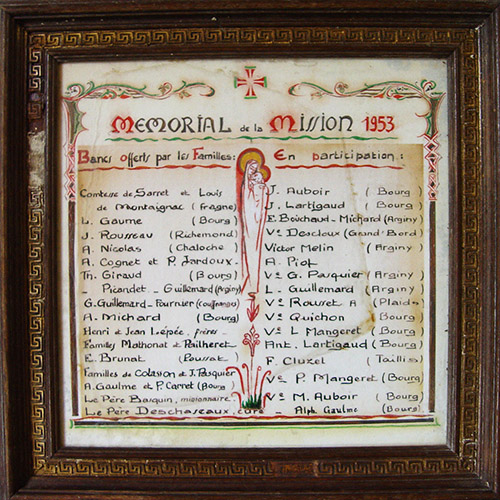 MEMORIAL de la MISSION 1953
Bancs offerts par les Familles:
Comtesse de Sarret et Louis
de Montaignac (Fragne)
L. Gaume (Bourg)
J. Rousseau (Richemond)
A. Nicolas (Chaloche)
A. Cognet et P. Jardoux.
Th. Giraud (Bourg)
- Picandet - Guillemard (Arginy)
G. Guillemard - Fournier
A. Michard (Bourg)
Henri et Jean Lépée, frères -
Familles Mathonat et Pailheret
E. Brunat (Poussat)
Familles de Colasson et J. Pasquier
A. Gaulme et P. Carret (Bourg)
Le Père Basquin, missionnaire.
Le Père Deschaseaux, curé -
En participation:
J. Auboir (Bourg)
J. Lartigaud (Bourg)
E. Bouchaud - Michard (Arginy)
Ve Descloux (Grand-Bord)
Victor Melin (Arginy)
A. Piot
Ve G. Pasquier (Arginy)
L. Guillemard (Arginy)
Ve Rousset A (Plaids)
Ve Quichon (Bourg)
Ve L Mangeret (Bourg)
Ant. Lartigaud (Bourg)
F. Cluzel (Taillis)
Ve P. Mangeret (Bourg)
Ve M. Auboir (Bourg)
Alph. Gaulme (Bourg)